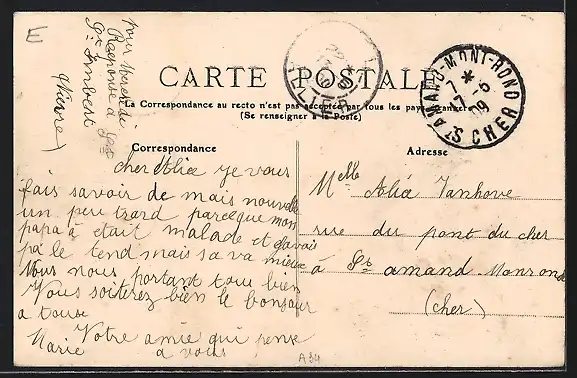 E
pour Mercredi
Raeponse a
St Lambert
CARTE POSTALE
La Correspondance au recto n'est pas acceptée par tous les pays étrangers
(Se renseigner à la Poste)
ST AMAND-MONT-ROND
7 *
17-5
09
CHER
Correspondance
Adresse
cher Alia ye vous
fais savoir de mais nouvelle
un peu trard parceque mon
papa à etait malade et
pa le tend mais sa va mieux
Nous nous portant tous bien
Vous soiterez bien le bonjour
a touse
Votre amie qui pense
Marie a vous
Melle Alia Vanhove
rue du pont du cher
à St amand Monronde
(cher)
A34